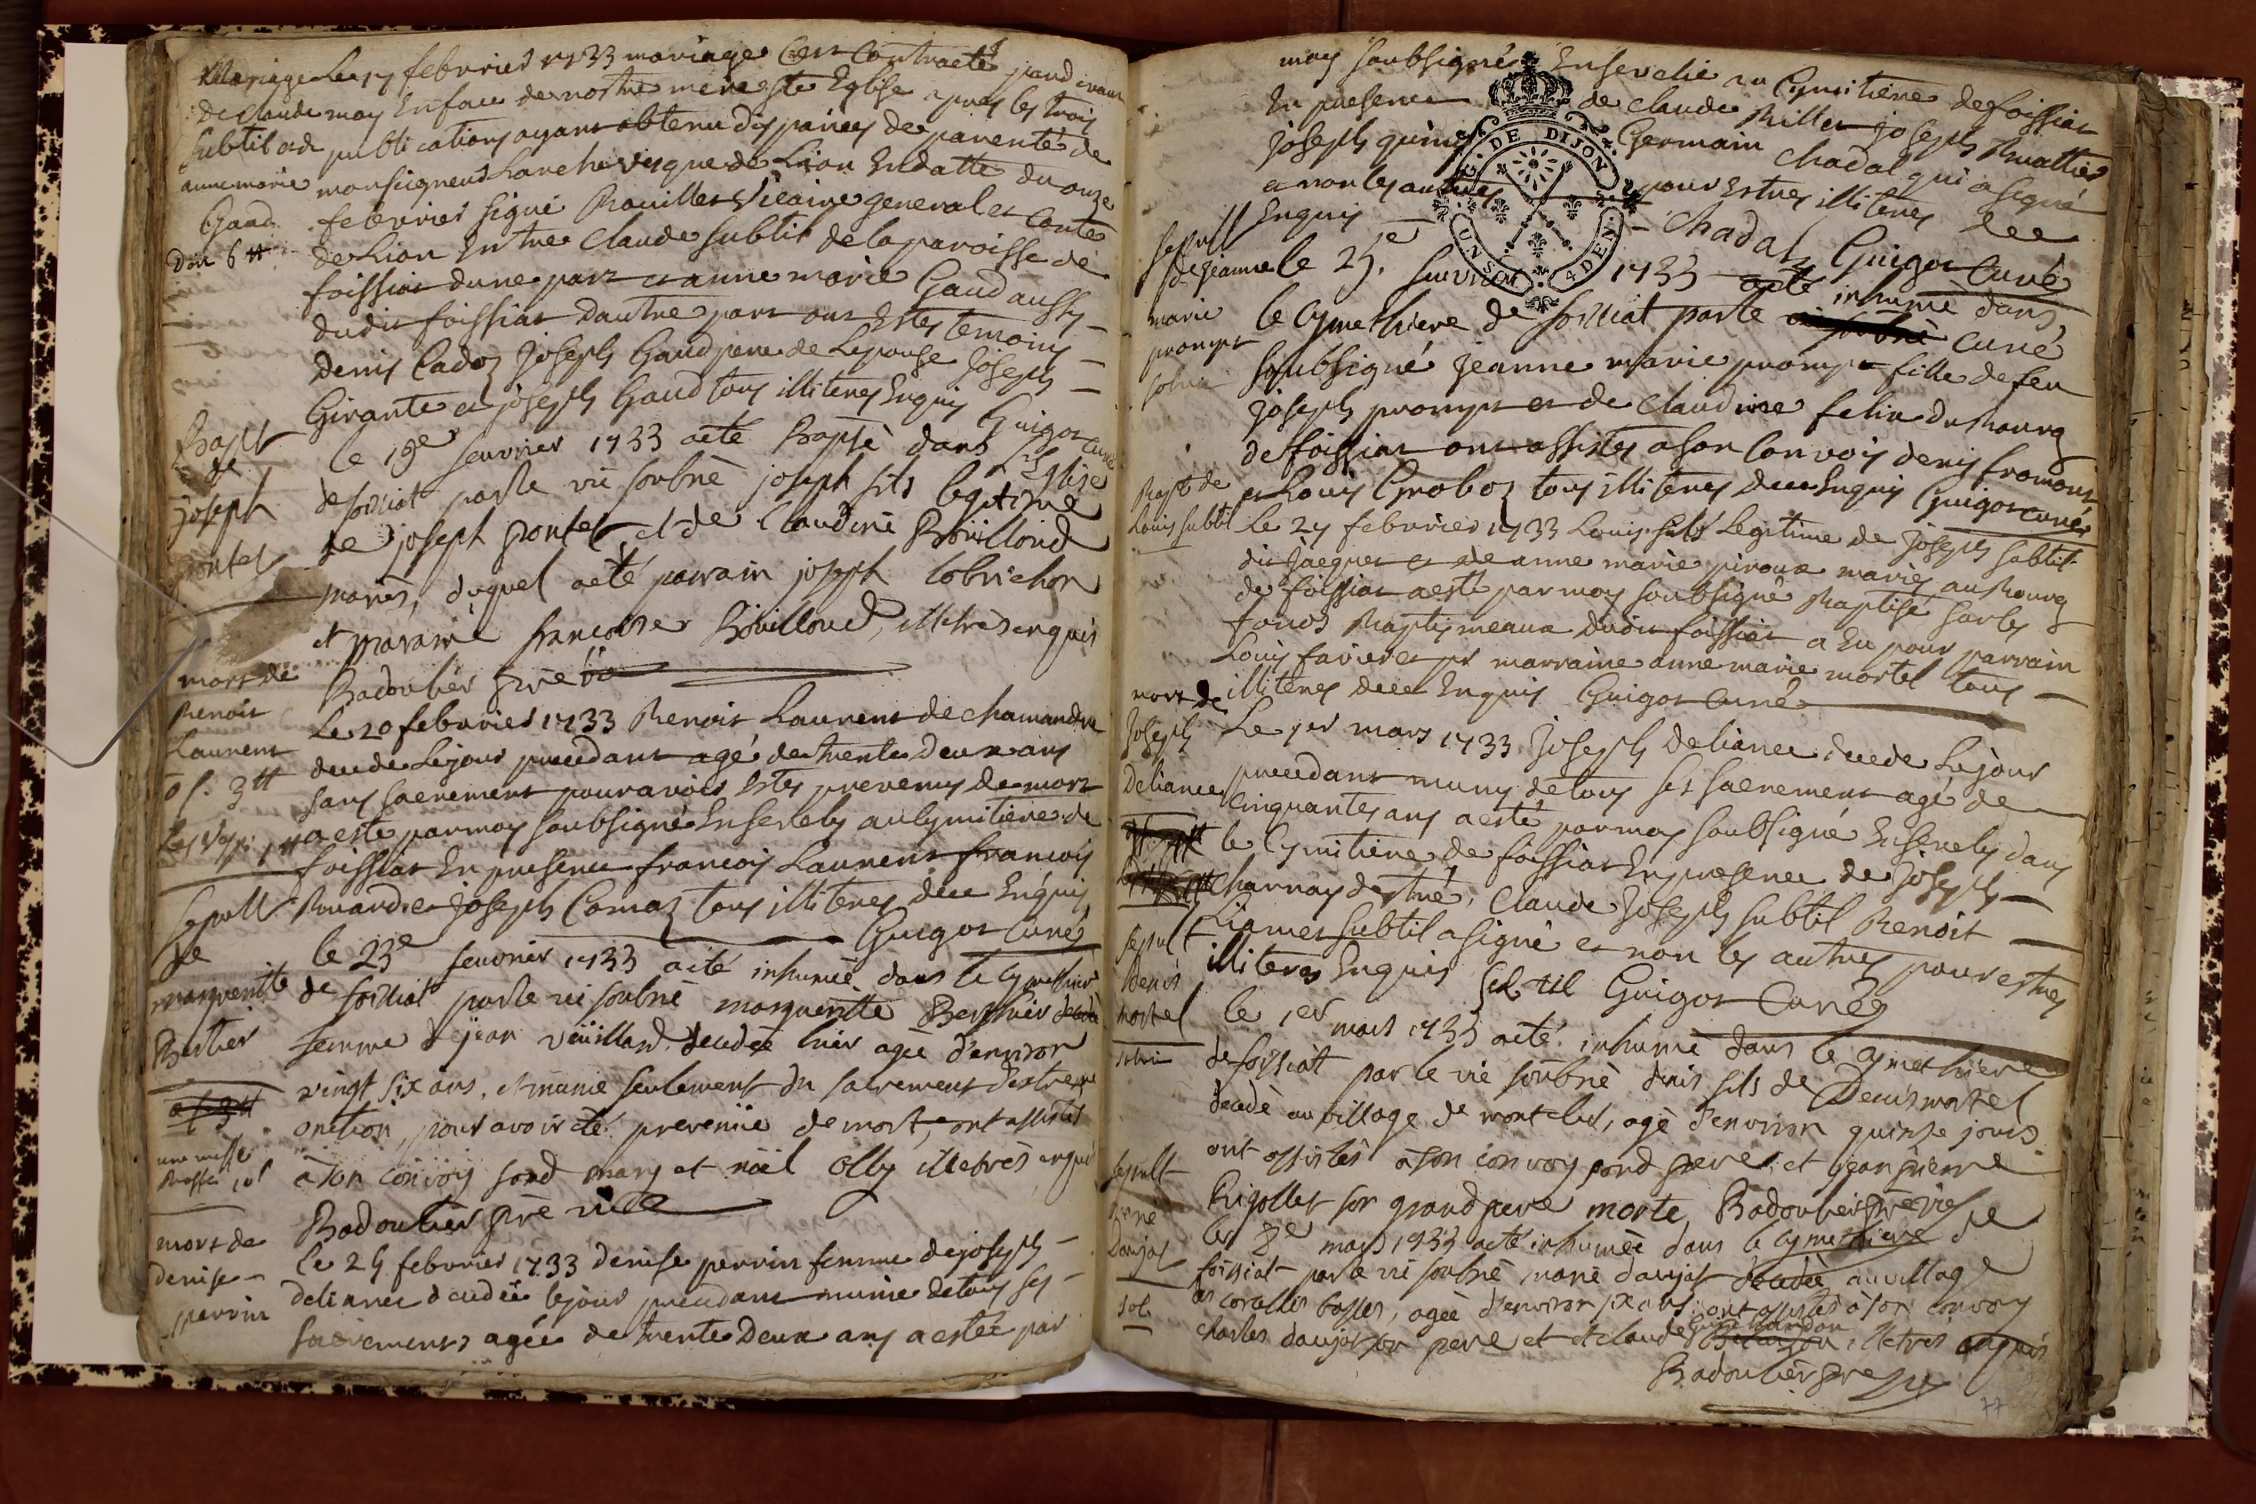 Mariage
de Claude
subtil et d
anne marie
Gaud
Don 6 tt
Le 17 febvrier 1733 mariage s'est contracté pard'evant
moy En face de nostre mere ste Eglise apres les trois
publications ayant obtenu dispances de parenté de
monseigneur Larchevesque de Lion En datte du onze
febvrier signé Rouillet vicaire general et Conte
de Lion Entre Claude subtil de la paroisse de
foissiat dune part et anne marie Gaud aussy
dudit foissiat dautre part ont Estes temoins
denis Cadoz Joseph Gaud pere de Lepouse Joseph
Girante et joseph Gaud tous illiteres Enquis
Guigot curé
Bapt
de
joseph
pontet
le 19e feuvrier 1733 aété Baptsé dans l'Eglise
de foissiat par le vic soubné joseph fils legitime
de joseph pontet, et de Claudine Bouilloud
mariés, duquel aété parrain joseph Cobrichon
et maraine francoise Bouilloud, illetrés enquis
Badoulier ptre vic
mort de
Benoit
Laurent
o f. 3 tt
Le 20 febvrier 1733 Benoit Laurent de chamandre
decedé Lejour precedant agé de trente deux ans
sans sacrement pour avoir Estes prevenus de mort
a esté par moy soubsigné Ensevely au Cymitiere de
foissiat En presence francois Laurent francois
Rouard et Joseph Comaz tous illiteres dece Enquis
Guigot Curé
sepult
de
marguerite
Bertier
o f. 3 tt
une messe
Basse 10 s
le 23e feuvrier 1733 aété inhumée dans le cymethiere
de foissiat par le vic soubné marguerite Berthier
femme de jean vüillard decedée hier agée d'environ
vingt six ans, et munie seulement du sacrement d'extreme
onction, pour avoir été prevenüe de mort, ont assistés
à son convoy sond mary et noël olly illetrés enquis
Badoulier ptre vic
mort de
denise
perrin
le 24 febvrier 1733 denise perrin femme de joseph
deliance decedée lejour precedant munie de tous ses
sacrements agée de trente deux ans a estée par
moy soubsigné Ensevelie au Cymitiere de foissiat
En presence de claude Billet joseph Ruattier
joseph Germain Chadal qui a signé
et non les autres pour Estres illiteres dece
Enquis Chadal Guigot Curé
DE DIJON
4 DEN.
sepult
de jeanne
marie
prompt
solvi
le 25e feuvrier 1733 aeté inhumé dans
le Cymethiere de foissiat par le curé
soubsigné jeanne marie prompt fille de feu
joseph prompt et de Claudine felix du bourg
de foissiat ont assistés a son Convois denis fromont
et Louis Groboz tous illiteres dece Enquis Guigot curé
Bapt de
Louis subtil
Le 27 febvrier 1733 Louis fils Legitime de Joseph subtil
dit jacquet et de anne marie piroux mariés au Bourg
de foissiat a esté par moy soubsigné Baptisé sur les
fonds Baptismeaux dudit foissiat a Eu pour parrain
Louis favier et pr marraine anne marie mortel tous
illiteres dece Enquis Guigot Curé
mort de
Joseph
Deliance
Le 1er mars 1733 Joseph deliance decede Lejour
precedant muny de tous ses sacrement agé de
cinquantes ans a esté par moy soubsigné Ensevely dans
le Cymitiere de foissiat En presence de Joseph
charnay de tré, Claude Joseph subtil Benoit
Liamet subtil a signé et non les autres pour estres
illiteres Enquis subtil Guigot Curé
sepult
denis
mortel
solvi
le 1er mars 1733 aété inhumé dans le cymethiere
de foissiat par le vic soubné denis fils de Denis mortel
decedé au village de montelus, agé d'environ quinze jours
ont assistés à son convoy sond pere, et jean pierre
Rigollet son grand pere Badoulier ptre vic
sepult
marie
Daujat
sol
le 8e mars 1733 aété inhumée dans le cymethiere de
foissiat par le vic soubné marie daujat decedée au village
des coralles basses, agée d'environ six ans, ont assistés à son convoy
charles daujat son pere et et claude illetrés enquis
Badoulier ptre vic
77